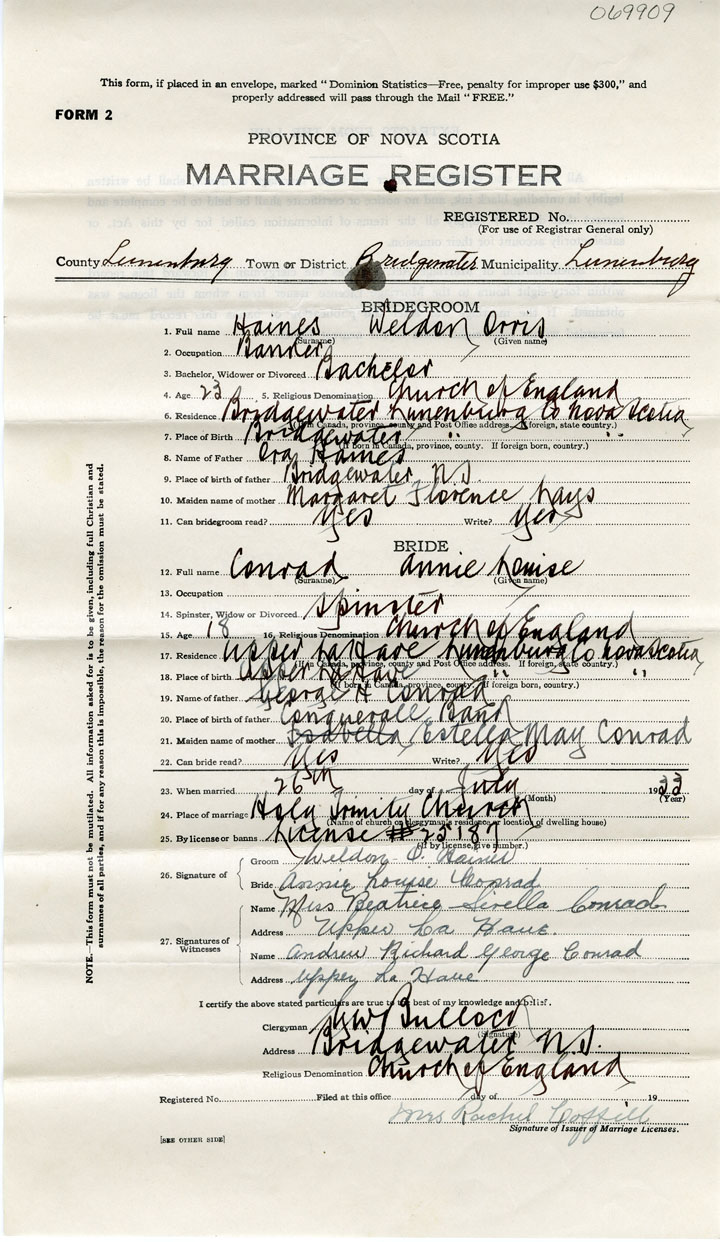 069909
This form, if placed in an envelope, marked "Dominion Statistics—Free, penalty for improper use $300," and
properly addressed will pass through the Mail "FREE."
FORM 2
PROVINCE OF NOVA SCOTIA
MARRIAGE REGISTER
REGISTERED No.
(For use of Registrar General only)
County Lunenburg Town or District Bridgewater Municipality Lunenburg
BRIDEGROOM
1. Full name Haines Weldon Orris
(Surname) (Given name)
2. Occupation Banker
3. Bachelor, Widower or Divorced Bachelor
4. Age 23 5. Religious Denomination Church of England
6. Residence Bridgewater Lunenburg Co Nova Scotia
(If in Canada, province, county and Post Office address. If foreign, state country.)
7. Place of Birth Bridgewater " "
(If born in Canada, province, county. If foreign born, country.)
8. Name of Father Ora Haines
9. Place of birth of father Bridgewater, N.S.
10. Maiden name of mother Margaret Florence Mays
11. Can bridegroom read? Yes Write? Yes
BRIDE
12. Full name Conrad Annie Louise
(Surname) (Given name)
13. Occupation
14. Spinster, Widow or Divorced Spinster
15. Age 18 16. Religious Denomination Church of England
17. Residence Upper LaHave Lunenburg Co Nova Scotia
(If in Canada, province, county and Post Office address. If foreign, state country.)
18. Place of birth Upper LaHave " "
(If born in Canada, province, county. If foreign born, country.)
19. Name of father George H Conrad
20. Place of birth of father Conquerall Band
21. Maiden name of mother Isabella Estella May Conrad
22. Can bride read? Yes Write? Yes
23. When married 26th day of July 1933
(Month) (Year)
24. Place of marriage Holy Trinity Church
(Name of church or clergyman's residence or location of dwelling house)
25. By license or banns License # 25187
(If by license, give number.)
26. Signature of
Groom Weldon O. Haines
Bride Annie Louise Conrad
27. Signatures of Witnesses
Name Miss Beatrice Sirella Conrad
Address Upper La Have
Name Andrew Richard George Conrad
Address Upper La Have
I certify the above stated particulars are true to the best of my knowledge and belief.
Clergyman Bullock
(Signature)
Address Bridgewater N.S.
Religious Denomination Church of England
Registered No. Filed at this office day of 19
Mrs Rachel Coffill
Signature of Issuer of Marriage Licenses.
[SEE OTHER SIDE]
NOTE.—This form must not be mutilated. All information asked for is to be given, including full Christian and
surnames of all parties, and if for any reason this is impossible, the reason for the omission must be stated.